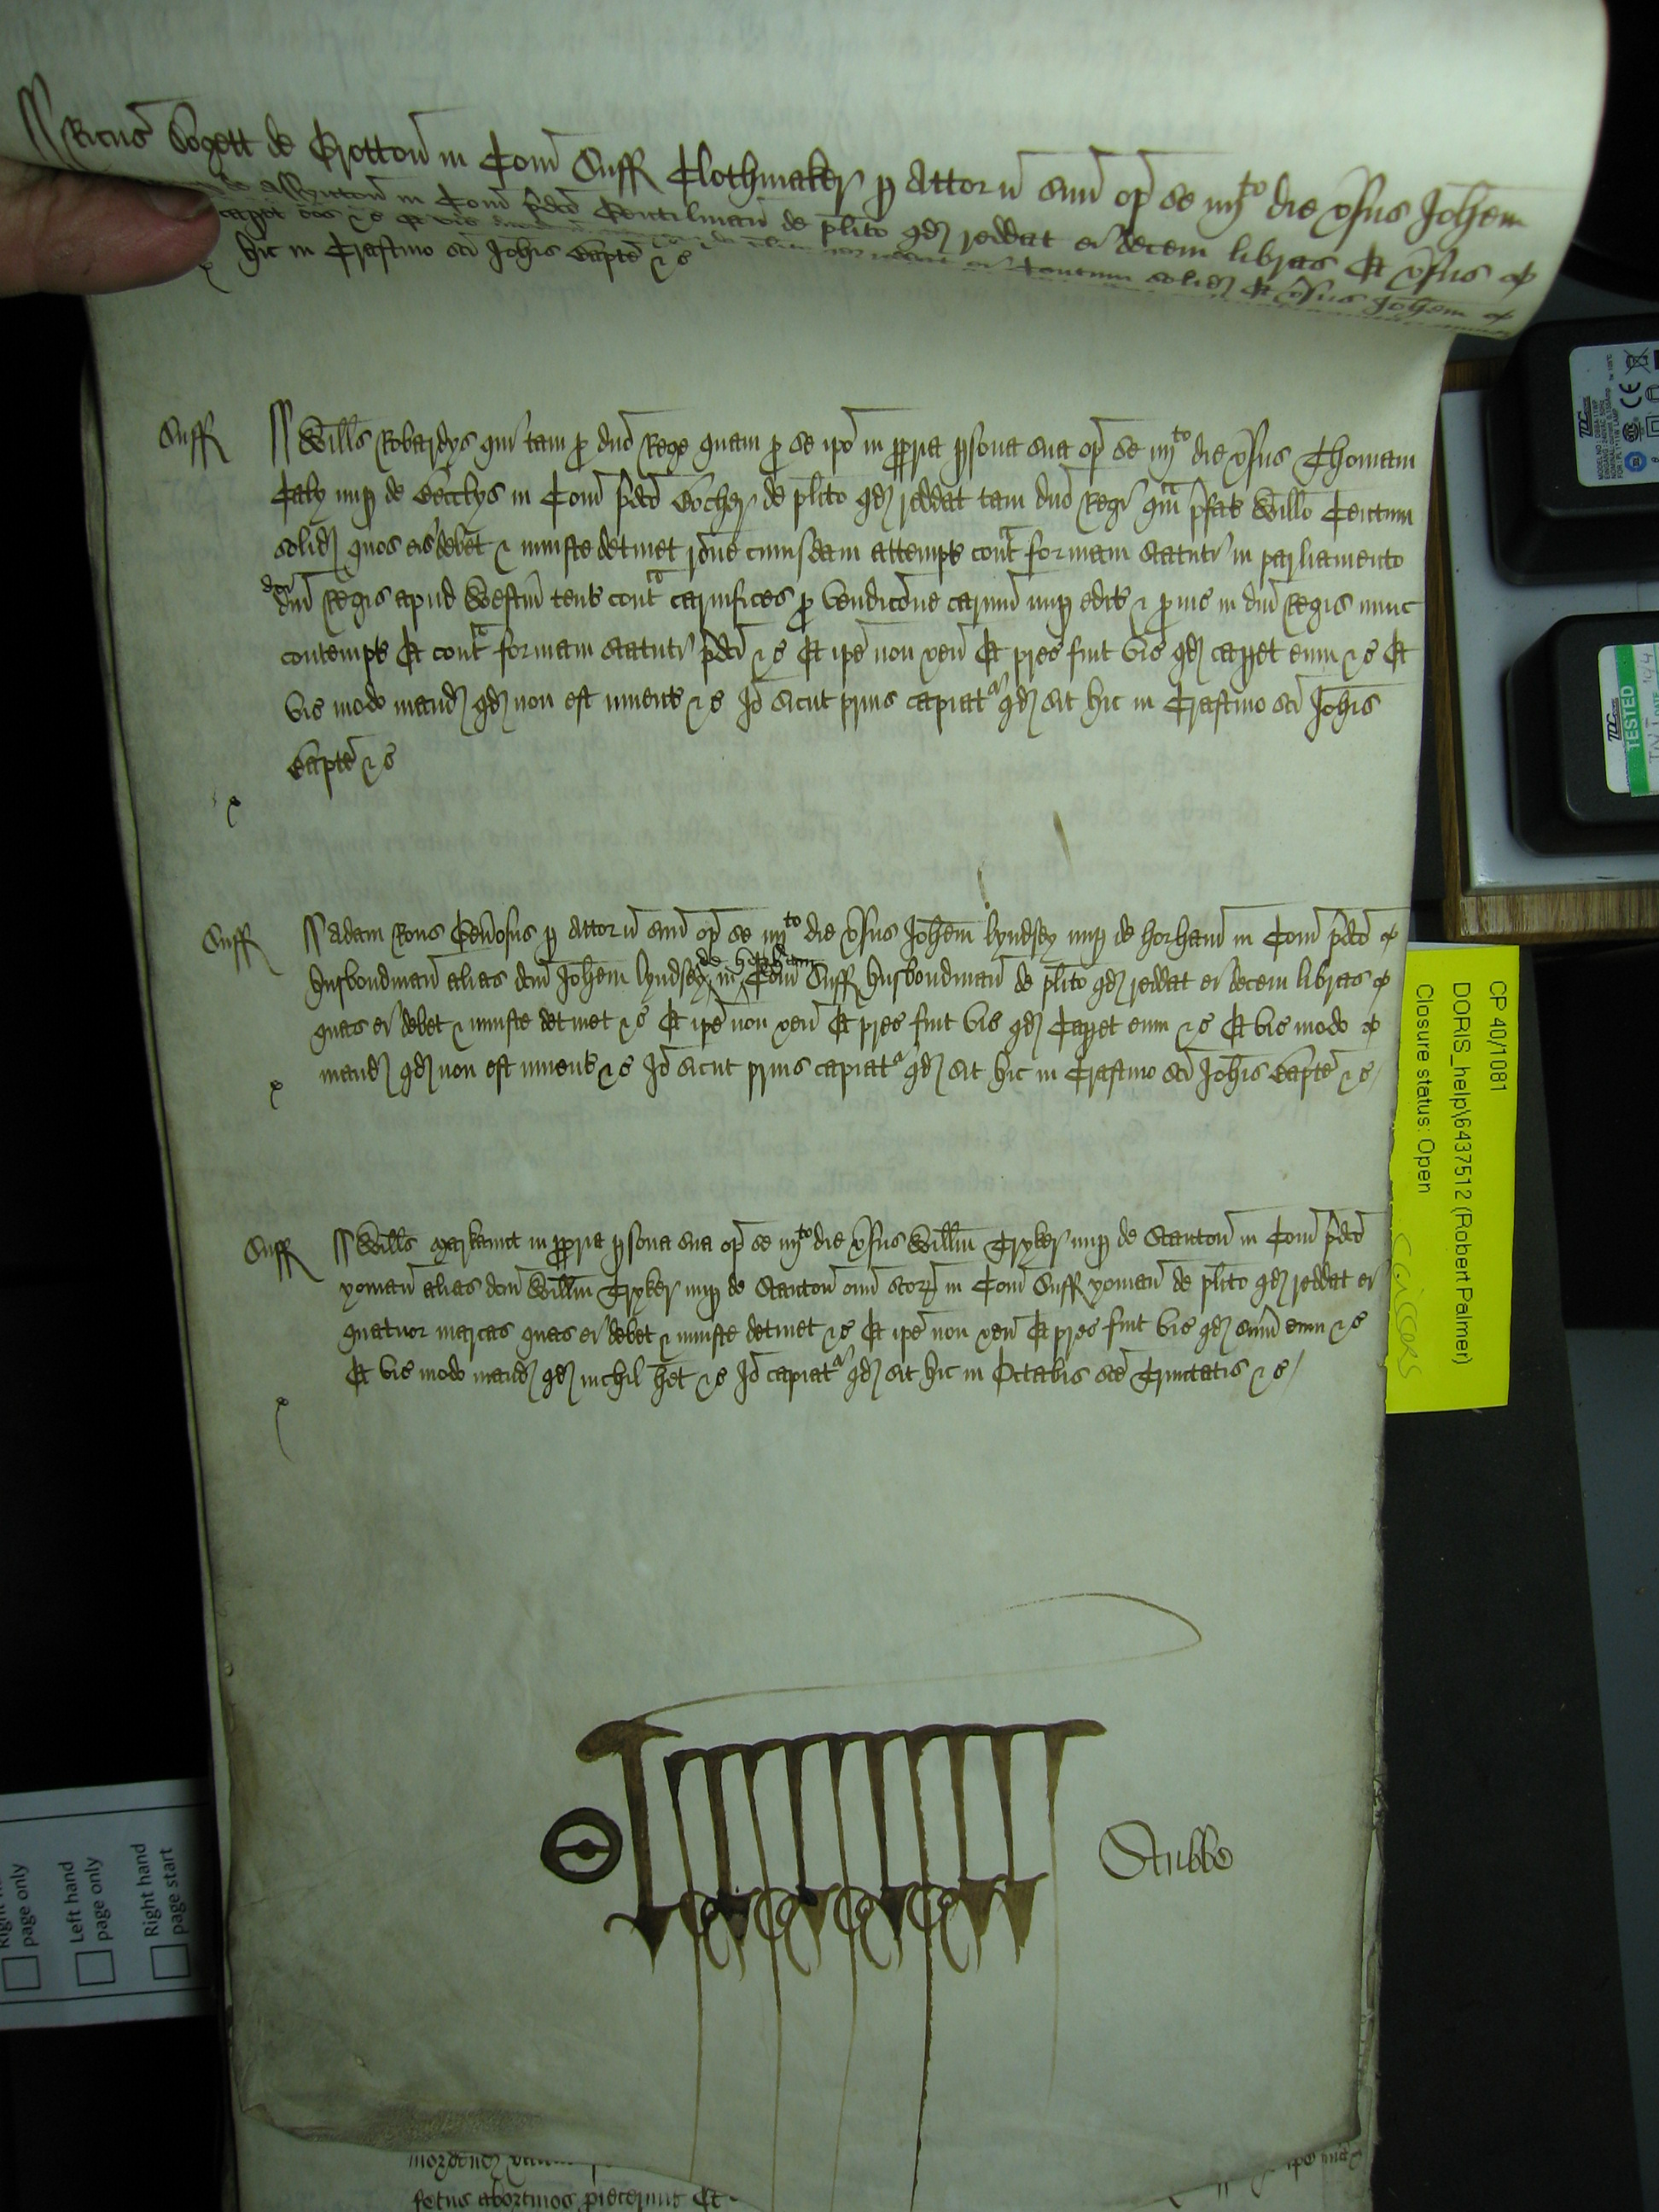 Ricus Bogett de Grotton in Com Suff Clothmaker p Attorn suu op se iiijto die vsus Johem
de Assyngton in Com pdco Gentilman de plito qd reddat ei decem libras Et vsus
capet eos &c Et vic de plito qd reddat ei Centum solid Et vsus Johem
hic in Crastino sci Johis Bapte &c
Suff Wills Robardys qui tam p dno Rege quam p se ipo in ppria psona sua op se iiijto die vsus Thomam
Caly nup de Becclys in Com pdco Bocher de plito qd reddat tam dno Regi qm pfat Willo Centum
solid quos eis debet & iniuste detinet rone cuiusdam attempt cont formam statuti in parliamento
dni Regis apud Westm tent cont carnifices p vendicone carniu nup edit & p ius in dni Regis nunc
contempt Et cont formam statuti pdci &c Et ipe non ven Et prec fuit vic qd capet eum &c Et
vic modo mand qd non est invent &c Io sicut prius capiat qd sit hic in Crastino sci Johis
Bapte &c
Suff Adam Rous Genosus p Attorn suu op se iiijto die vsus Johem lyndsey nup de horham in Com pdco
husbondman alias dcm Johem lyndsey de higham in Com Suff husbondman de plito qd reddat ei decem libras
quas ei debet & iniuste detinet &c Et ipe non ven Et prec fuit vic qd Capet eum &c Et vic modo
mand qd non est invent &c Io sicut prius capiat qd sit hic in Crastino sci Johis Bapte &c
Suff Wills Markannt in ppria psona sua op se iiijto die vsus Willm Tryker nup de Stanton in Com pdco
yoman alias dcm Willm Tryker nup de Stanton oim scor in Com Suff yoman de plito qd reddat ei
quatuor marcas quas ei debet & iniuste detinet &c Et ipe non ven Et prec fuit vic qd sum eum &c
Et vic modo mand qd nichil het &c Io capiat qd sit hic in Octabis sce Trinitatis &c
Stubbe
fetus abortivos piecerunt Et
CP 40/1081
DORIS_help\6437512 (Robert Palmer)
Closure status: Open
TESTED
page only
Left hand
page only
Right hand
page start